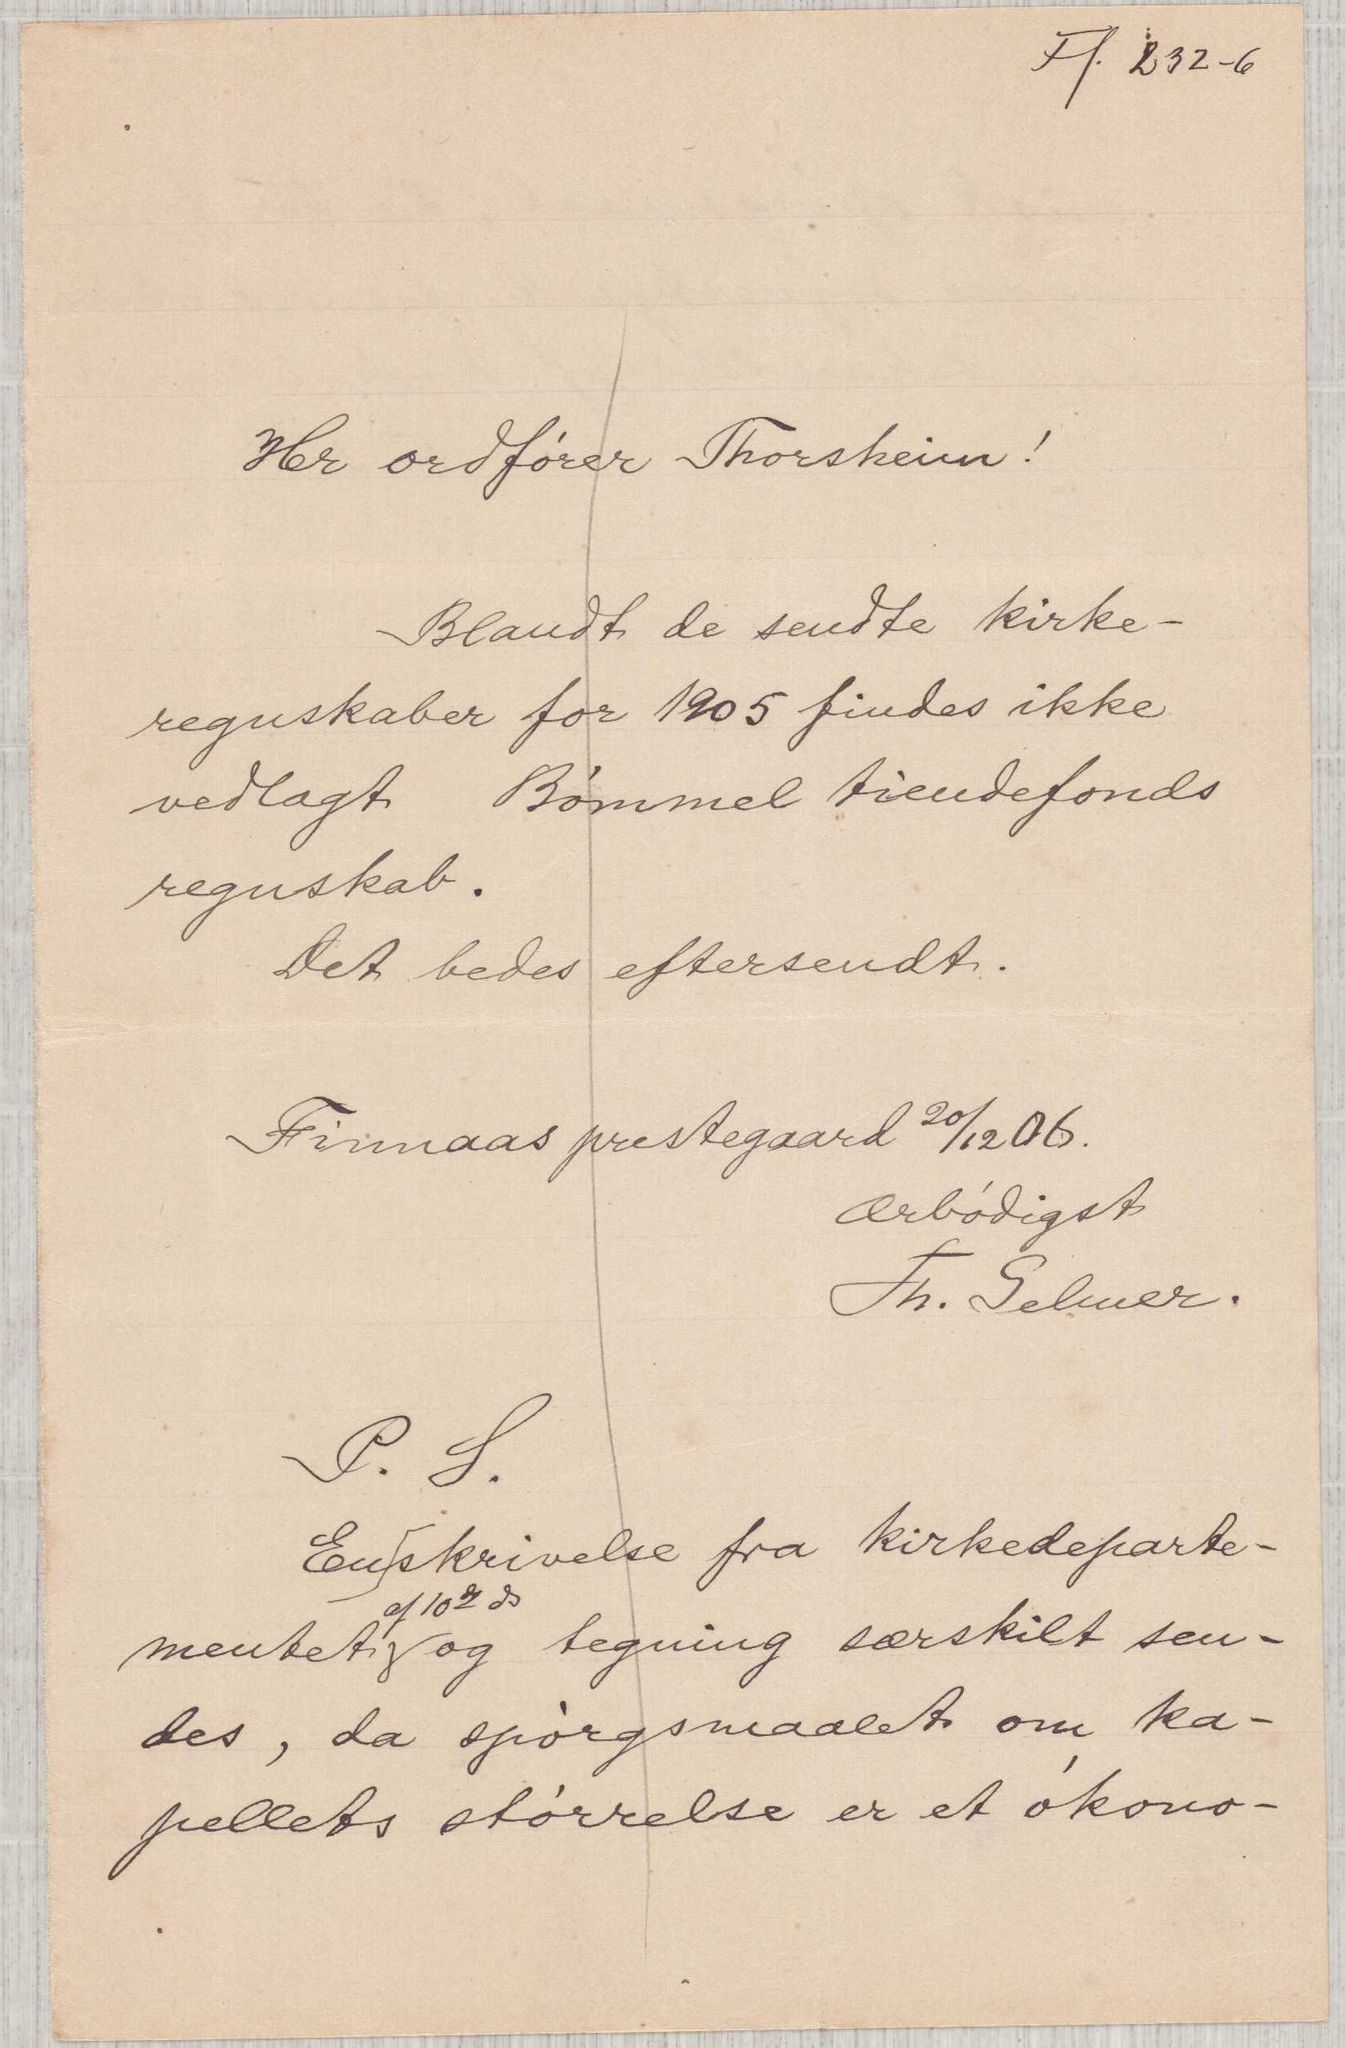 Ff. 232-6
Hr ordfórer Thorsheim!
Blandt de sendte kirke-
regnskaber for 1905 findes ikke
vedlagt Bómmel tiendefonds
regnskab.
Det bedes eftersendt.
Finnaas prestegaard 20/12 06.
Ærbódigst
Th. Selmer.
P. S.
En skrivelse fra kirkedeparte-
af 10 ds
mentet og tegning særskilt sen-
des, da spórgsmaalet om ka-
pellets stórrelse er et ókono-